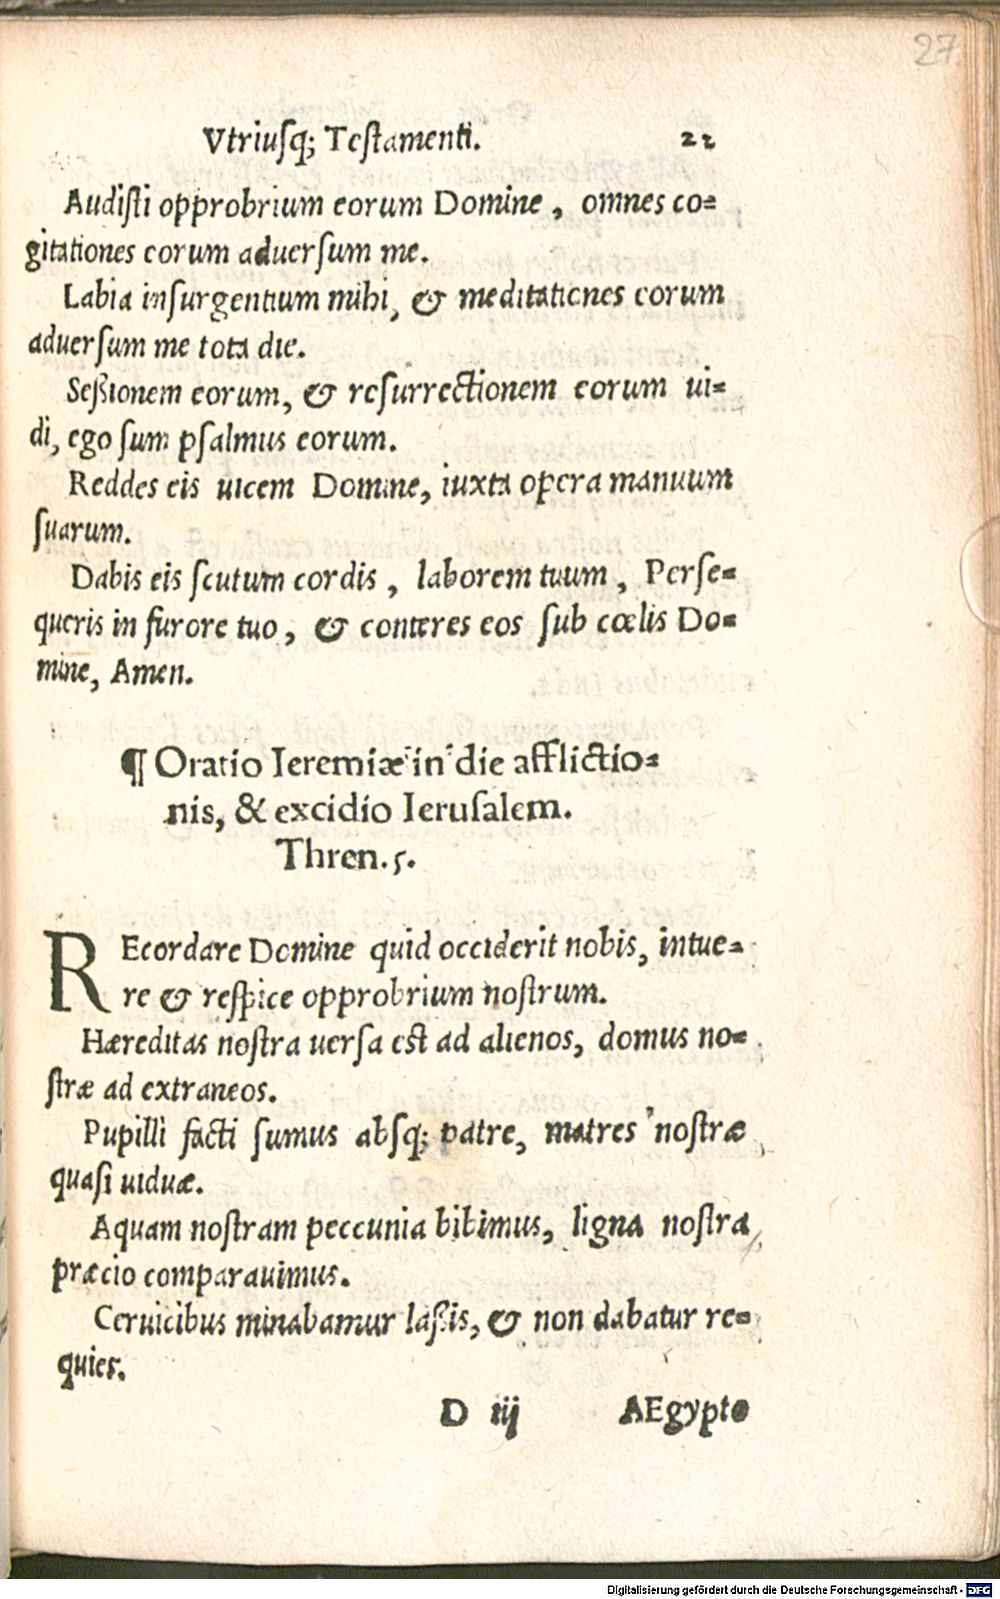 27
Vtriusq; Testamenti. 22
Audisti opprobrium eorum Domine, omnes co=
gitationes eorum aduersum me.
Labia insurgentium mihi, & meditationes eorum
aduersum me tota die.
Seßionem eorum, & resurrectionem eorum ui=
di, ego sum psalmus eorum.
Reddes eis uicem Domine, iuxta opera manuum
suarum.
Dabis eis scutum cordis, laborem tuum, Perse=
queris in furore tuo, & conteres eos sub cœlis Do=
mine, Amen.
¶ Oratio Ieremiæ in die afflictio=
nis, & excidio Ierusalem.
Thren. 5.
REcordare Domine quid occiderit nobis, intue=
re & respice opprobrium nostrum.
Hæreditas nostra uersa est ad alienos, domus no=
stræ ad extraneos.
Pupilli facti sumus absq; patre, matres nostræ
quasi uiduæ.
Aquam nostram peccunia bibimus, ligna nostra
præcio comparauimus.
Ceruicibus minabamur laßis, & non dabatur re=
quies.
D iij AEgypto
Digitalisierung gefördert durch die Deutsche Forschungsgemeinschaft - DFG